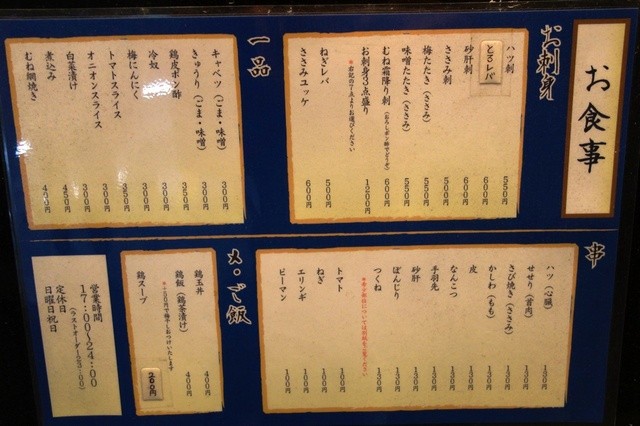 お食事
お刺身
ハツ刺 550円
とろレバ 600円
砂肝刺 600円
ささみ刺 500円
梅たたき（ささみ） 550円
味噌たたき（ささみ） 550円
むね霜降り刺（おろしポン酢でどうぞ） 600円
お刺身3点盛り 1200円
※右記の7点よりお選びください
ねぎレバ 500円
ささみユッケ 600円
一品
キャベツ（ごま・味噌） 300円
きゅうり（ごま・味噌） 300円
鶏皮ポン酢 350円
冷奴 300円
梅にんにく 350円
トマトスライス 300円
オニオンスライス 300円
白菜漬け 300円
煮込み 450円
むね網焼き 400円
串
ハツ（心臓） 130円
せせり（首肉） 130円
さび焼き（ささみ） 130円
かしわ（もも） 130円
皮 130円
なんこつ 130円
手羽先 130円
砂肝 130円
ぼんじり 130円
つくね 130円
トマト 100円
ねぎ 100円
エリンギ 100円
ピーマン 100円
〆・ご飯
鶏玉丼 400円
鶏飯（鶏茶漬け） 400円
鶏スープ 200円
営業時間
17:00〜24:00
（ラストオーダー23:00）
定休日
日曜日祝日